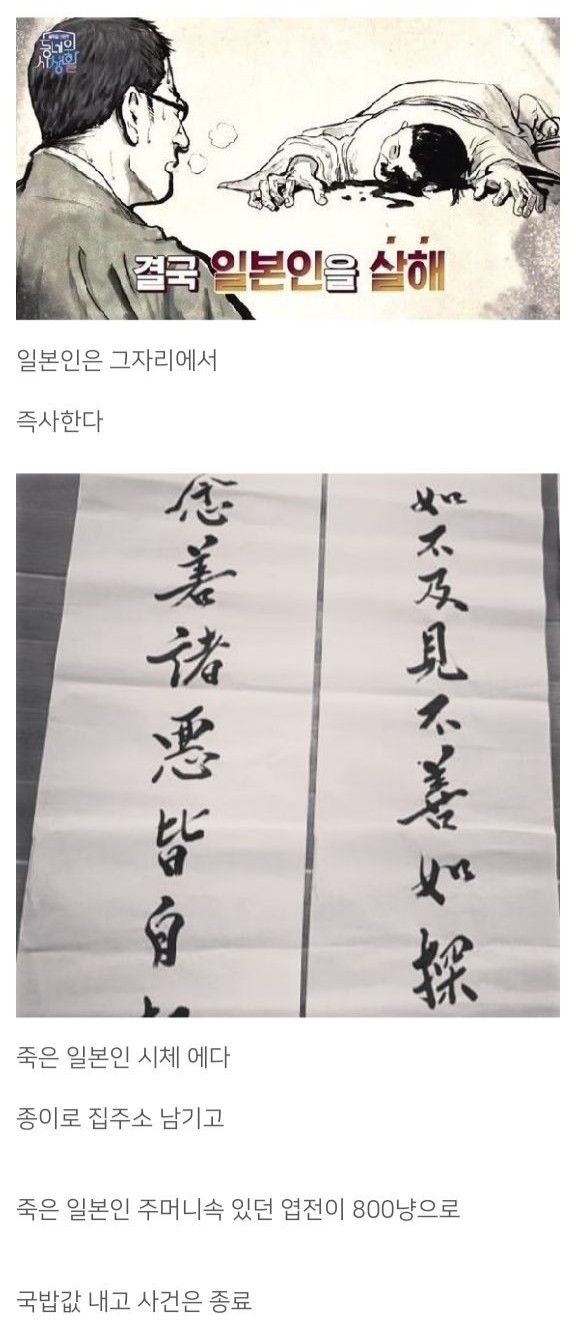 동네의
사생활
결국 일본인을 살해
일본인은 그자리에서
즉사한다
如不及見不善如探
念善諸惡皆自
죽은 일본인 시체 에다
종이로 집주소 남기고
죽은 일본인 주머니속 있던 엽전이 800냥으로
국밥값 내고 사건은 종료